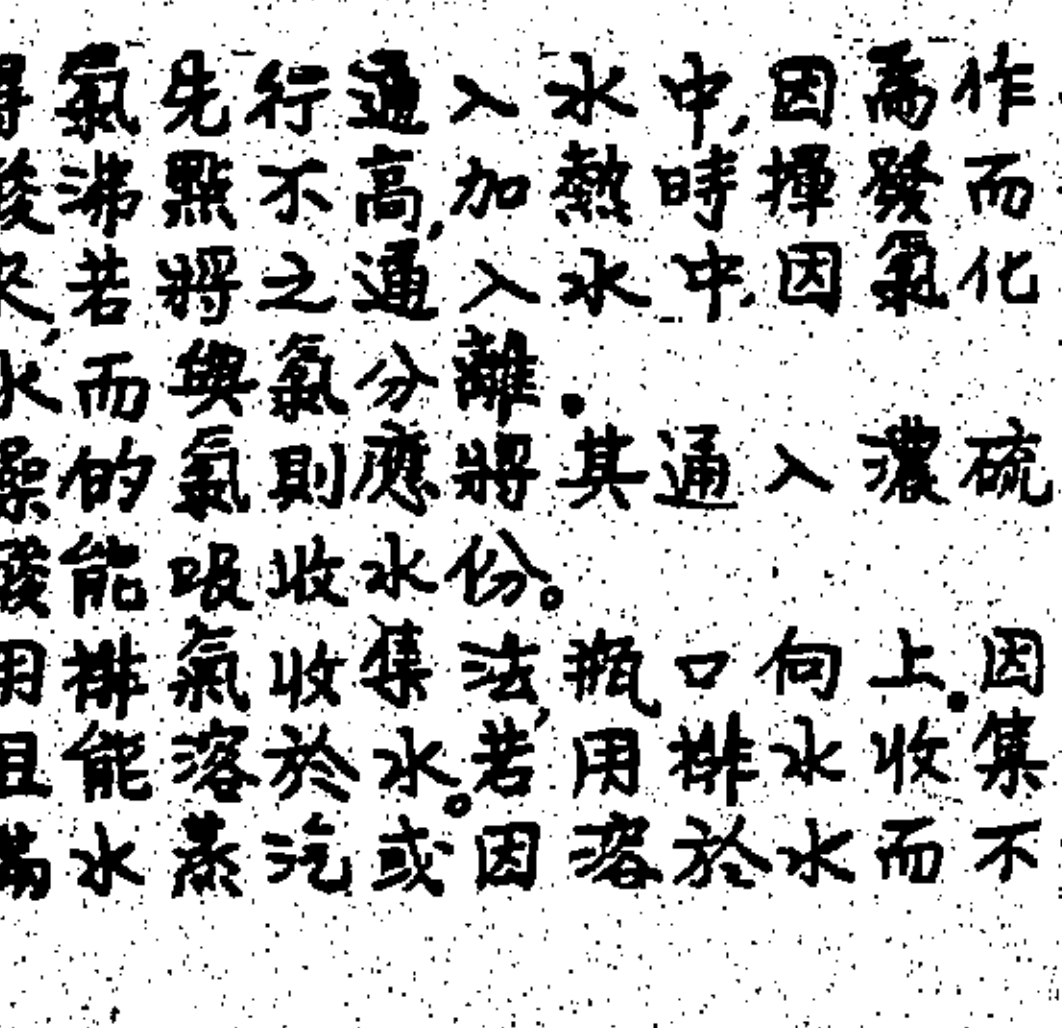 得氯先行通入水中,因爲作
酸沸點不高,加熱時揮發而
來,若將之通入水中,因氯化
水,而與氯分離.
燥的氯則應將其通入濃硫
酸能吸收水份。
用排氣收集法,瓶口向上.因
且能溶於水。若用排水收集
水蒸汽或因溶於水而不